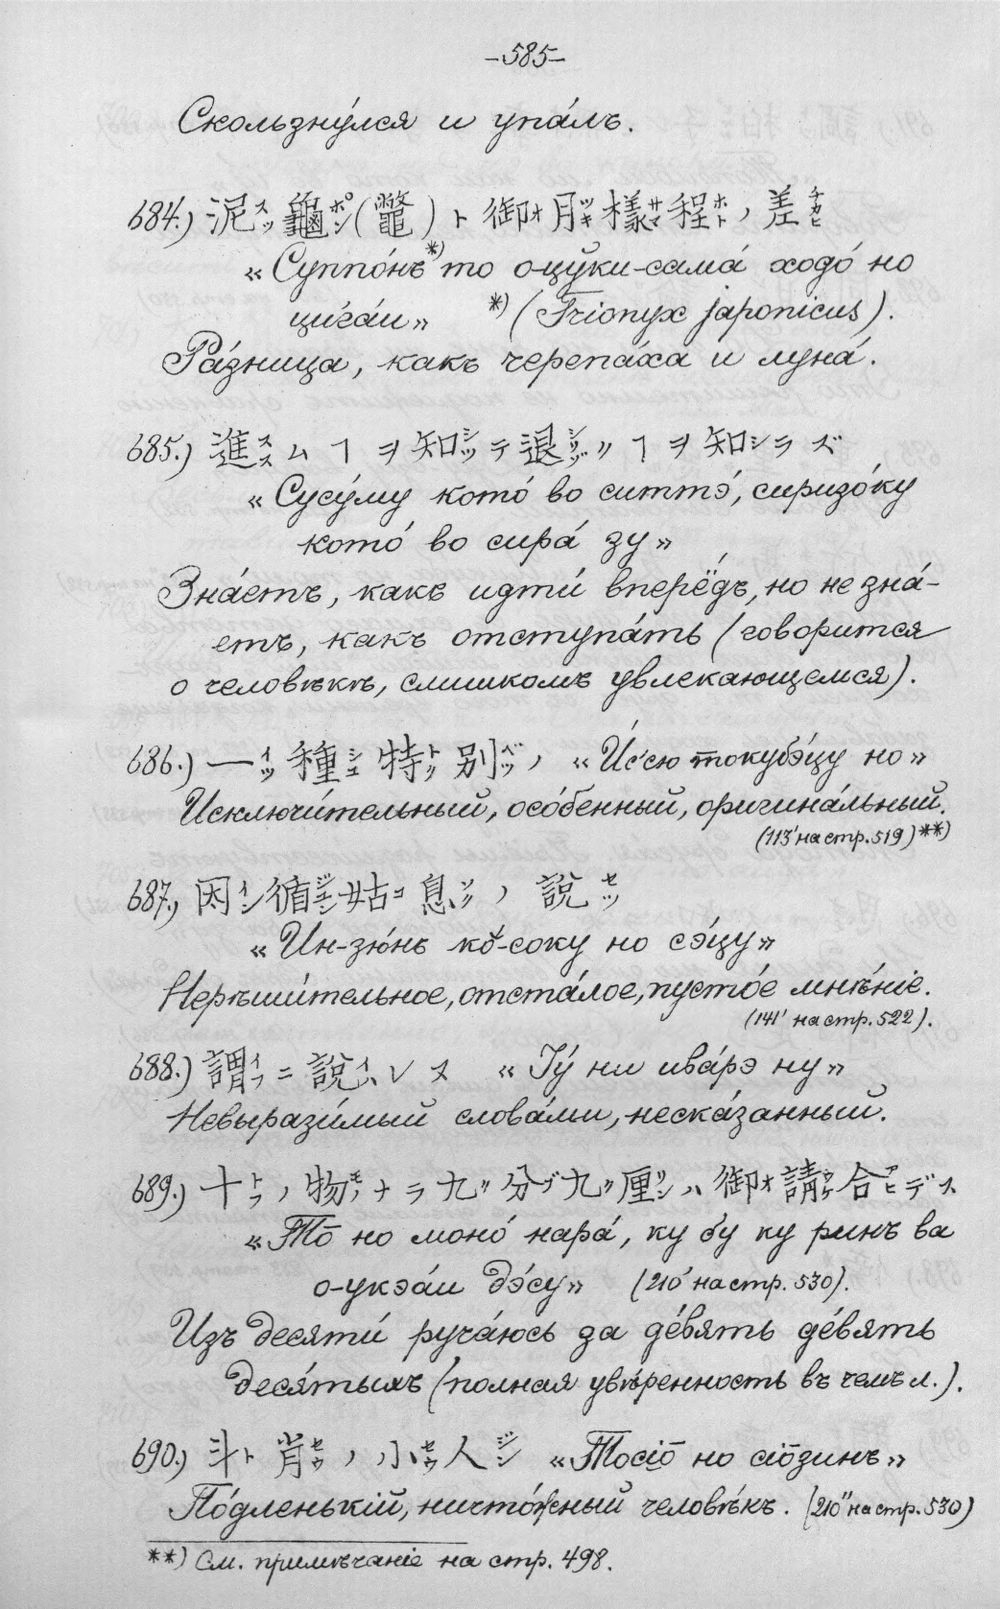 –585–
Скользну́лся и упа́лъ.
684.) 泥スッ龜ポン(鼈)ト御オ月ツキ樣サマ程ホトノ差チガヒ
«Суппо́нъ*) то о-цу́ки-сама́ ходо́ но
цига́и» *) (Trionyx japonicus).
Ра́зница, какъ черепа́ха и луна́.
685.) 進スヽムヿヲ知シッテ退シリゾクヿヲ知シラズ
«Сусу́му кото́ во ситтэ́, сиризо́ку
кото́ во сира́ зу»
Зна́етъ, какъ идти́ вперёдъ, но не зна́-
етъ, какъ отступа́ть (говорится
о человѣкѣ, слишкомъ увлекающемся).
686.) 一イッ種シユ特トク别ベツノ «И́с'сю токубэ́цу но»
Исключи́тельный, осо́бенный, оригина́льный.
(113' на стр. 519)**)
687.) 因イン循ジユン姑コ息ソクノ說セツ
«Ин-зю́нъ ко̆-соку но сэ́цу»
Нерѣши́тельное, отста́лое, пусто́е мнѣ́ніе.
(141' на стр. 522).
688.) 謂イフニ說イハレヌ «Іу́ ни ива́рэ ну»
Невырази́мый слова́ми, неска́занный.
689.) 十トヲノ物モノナラ九ク分ブ九ク厘リンハ御オ請ウケ合アヒデス
«То̄ но моно́ нара́, ку бу ку ринъ ва
о-укэа́и дэ́су» (210' на стр. 530).
Изъ десяти́ руча́юсь за де́вять де́вять
деся́тыхъ (полная увѣ́ренность въ чемъ л.).
690.) 斗ト肖セウノ小セウ人ジン «Тосіо̄ но сіо̄зинъ»
По́дленькій, ничто́жный человѣ́къ. (210'' на стр. 530)
**) См. примѣчаніе на стр. 498.